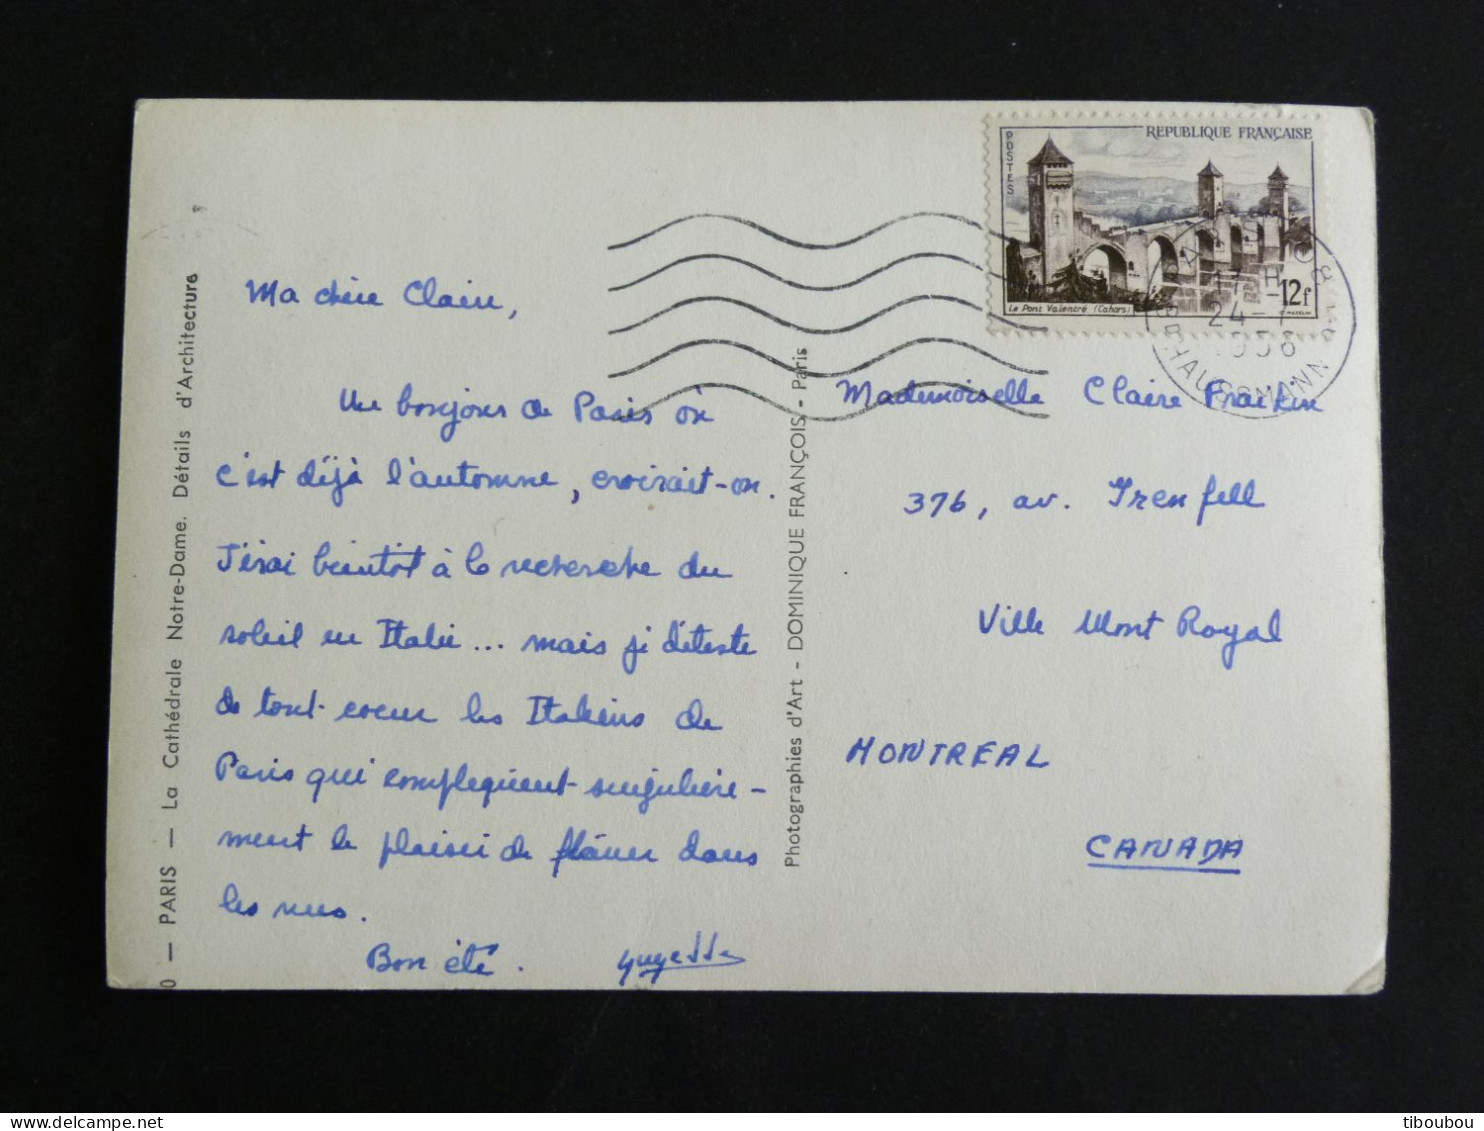 POSTES
REPUBLIQUE FRANÇAISE
12f
Le Pont Valentré (Cahors)
17 H
24-7
1958
HAUSSMANN
O — PARIS — La Cathédrale Notre-Dame. Détails d'Architecture
Ma chère Claire,
Un bonjour de Paris où
c'est déjà l'automne, croirait-on.
J'irai bientôt à la recherche du
soleil en Italie ... mais je déteste
de tout coeur les Italiens de
Paris qui compliquent singulière-
ment le plaisir de flâner dans
les rues.
Bon été. Guyette
Photographies d'Art - DOMINIQUE FRANÇOIS - Paris
Mademoiselle Claire
376, av. Trenfell
Ville Mont Royal
MONTREAL
CANADA
tiboubou